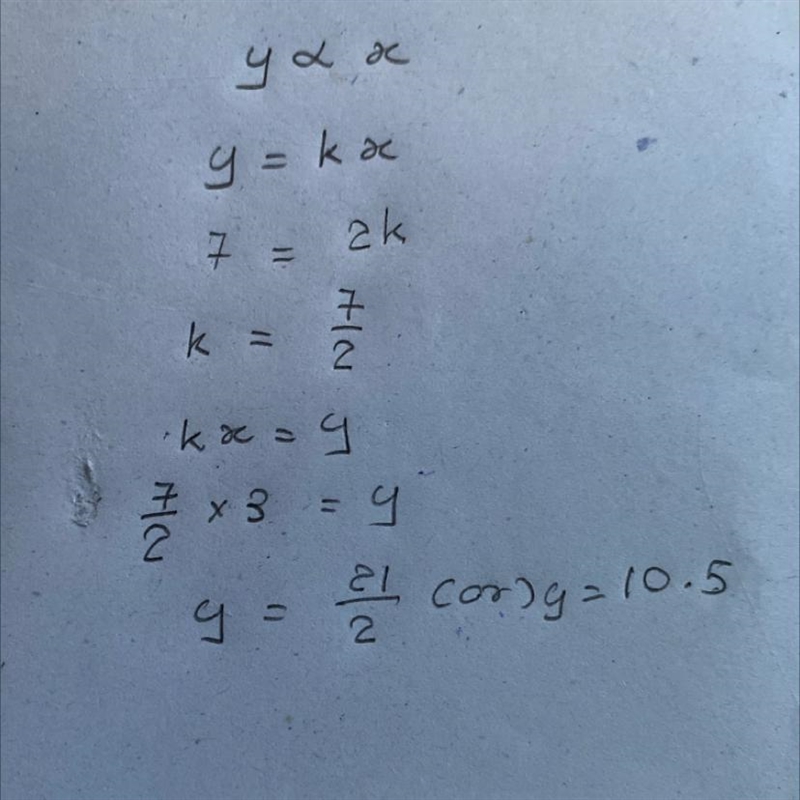 y ∝ x
y = kx
7 = 2k
k = 7/2
kx = y
7/2 × 3 = y
y = 21/2 (or) y = 10.5